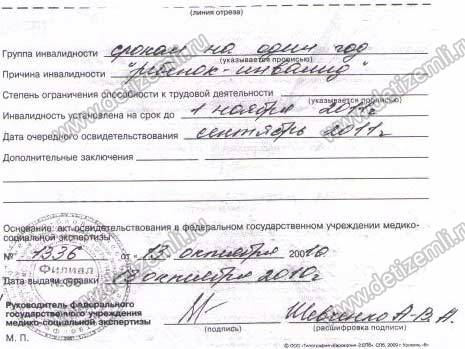 (линия отреза)
Группа инвалидности сроком на один год
(указывается прописью)
Причина инвалидности "ребенок-инвалид"
Степень ограничения способности к трудовой деятельности
(указывается прописью)
Инвалидность установлена на срок до 1 ноября 2011г
Дата очередного освидетельствования сентябрь 2011г
Дополнительные заключения
Основание: акт освидетельствования в федеральном государственном учреждении медико-
социальной экспертизы
№ 1336 от "13" октября 20010.
Филиал
Дата выдачи справки 13 октября 2010г
Руководитель федерального
государственного учреждения
медико-социальной экспертизы Шевченко А.В.
(подпись) (расшифровка подписи)
М. П.
www.detizemli.ru